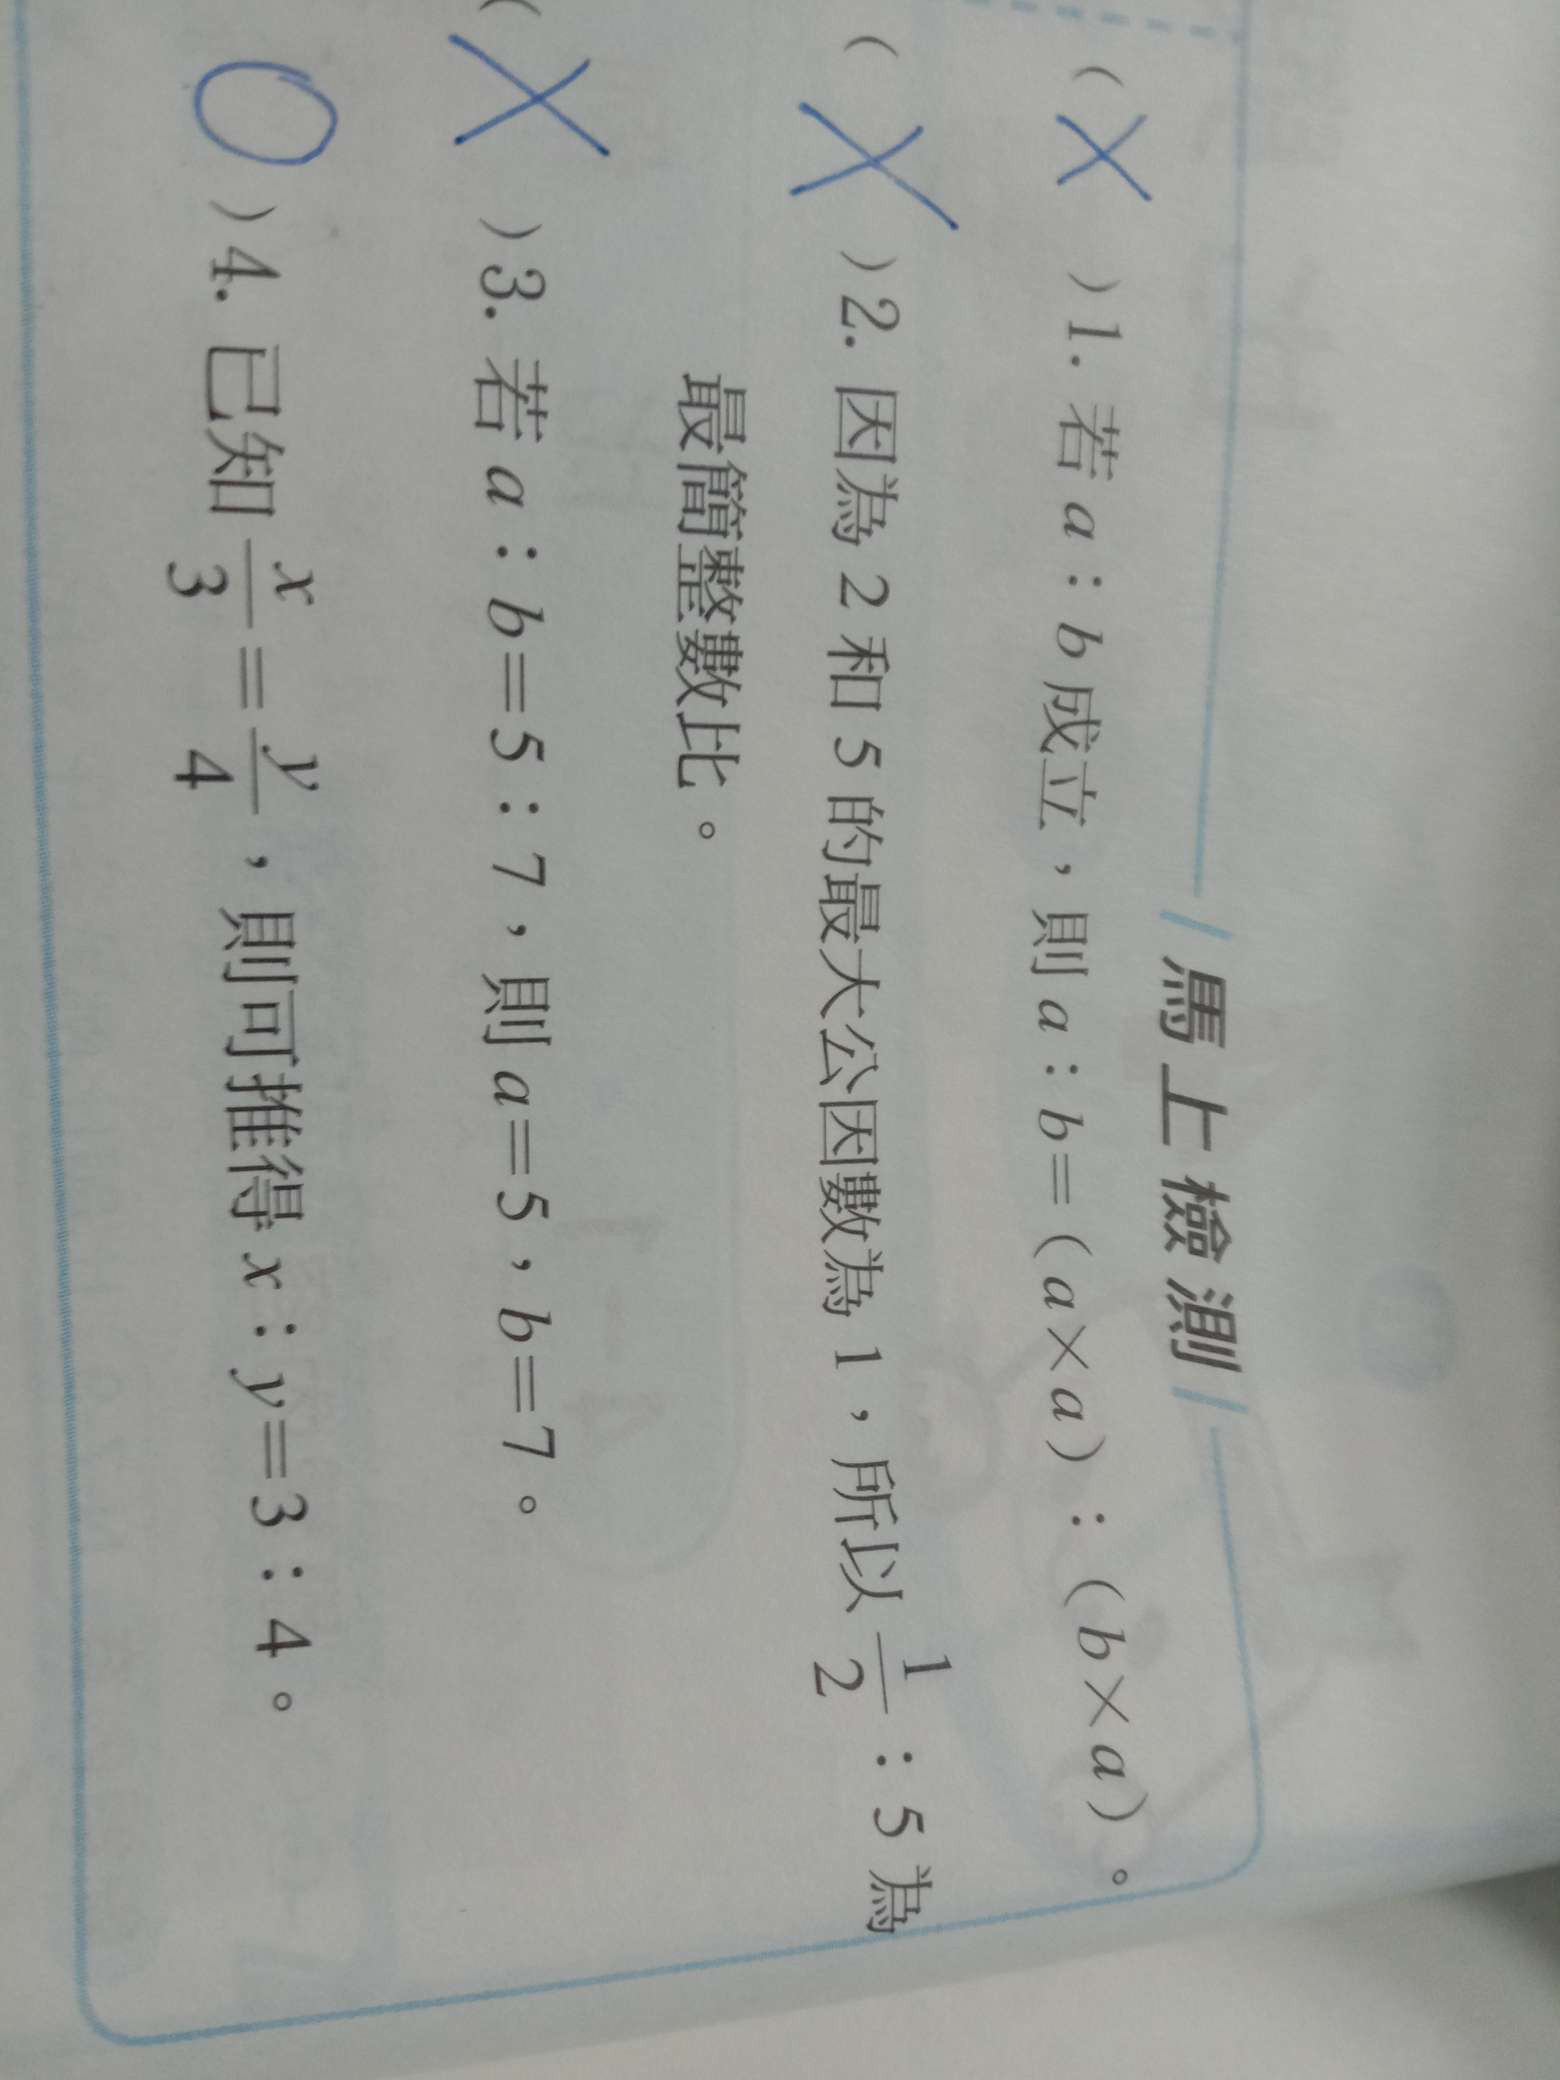 馬上檢測
( X )1. 若 a：b 成立，則 a：b=（a×a）：（b×a）。
( X )2. 因為 2 和 5 的最大公因數為 1，所以 1/2：5 為
最簡整數比。
( X )3. 若 a：b=5：7，則 a=5，b=7。
O )4. 已知 x/3=y/4，則可推得 x：y=3：4。